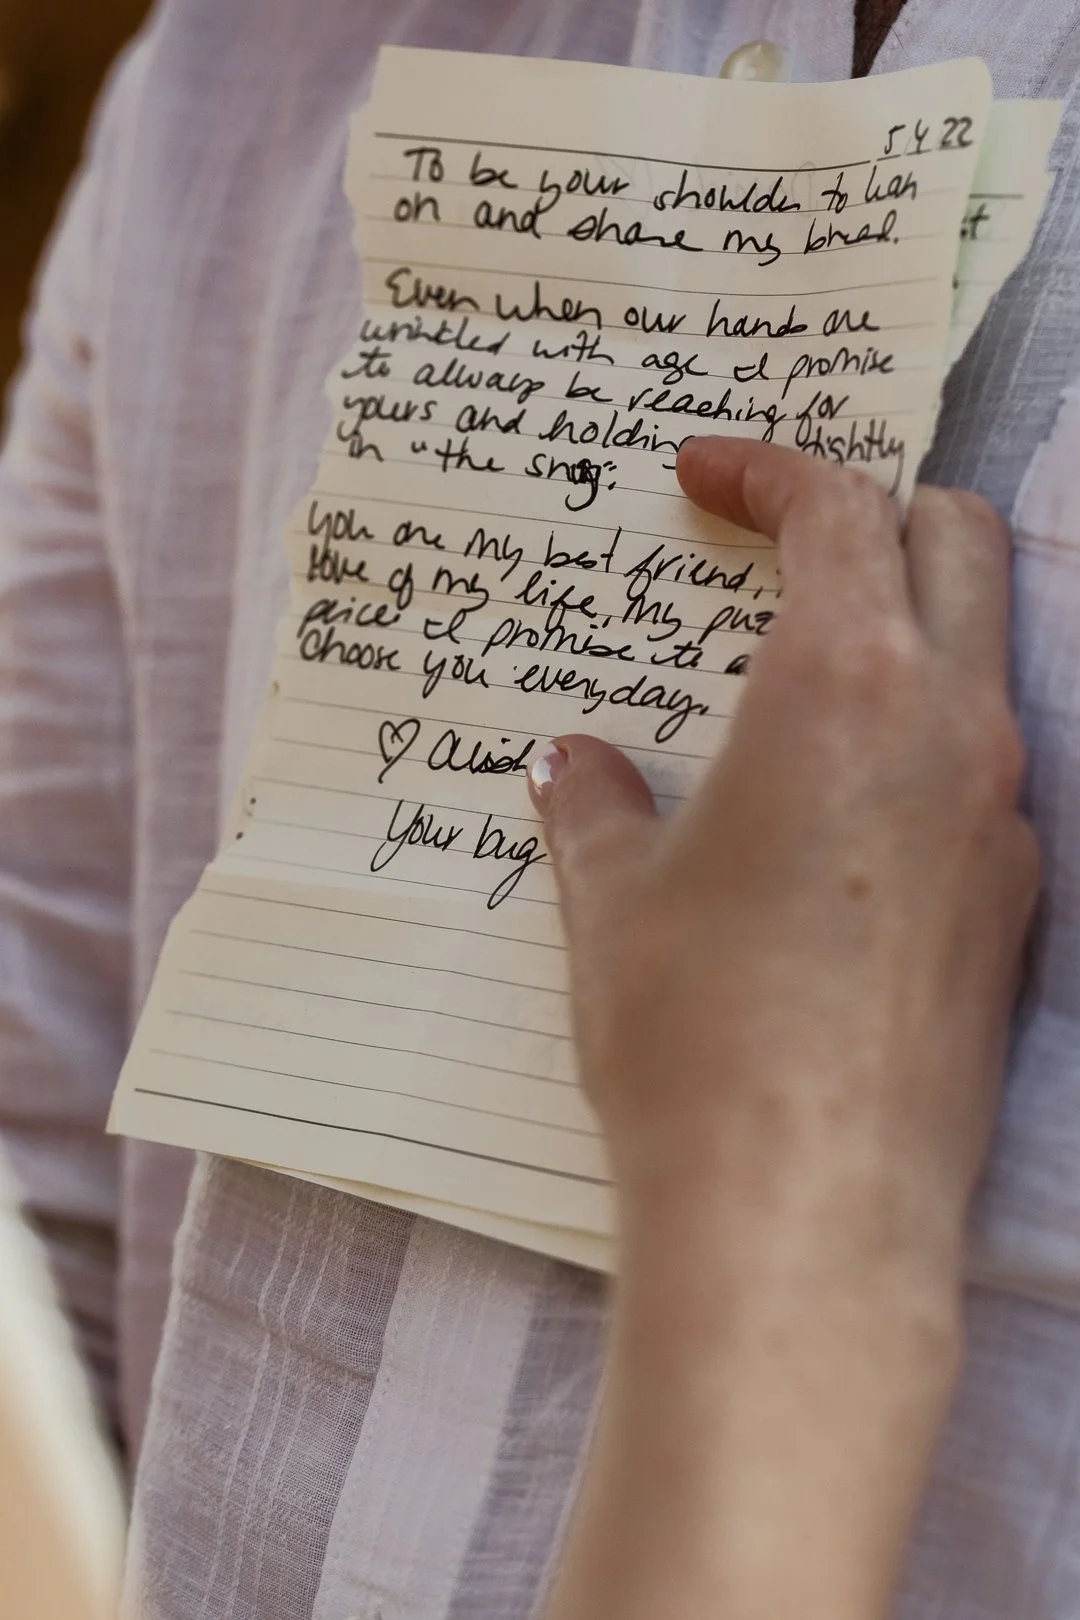 5 4 22
To be your shoulder to lean
on and share my bread.
Even when our hands are
wrinkled with age I promise
to always be reaching for
yours and holding tightly
in "the snug".
You are my best friend,
love of my life, my
piece I promise to
choose you everyday.
♡
Your bug